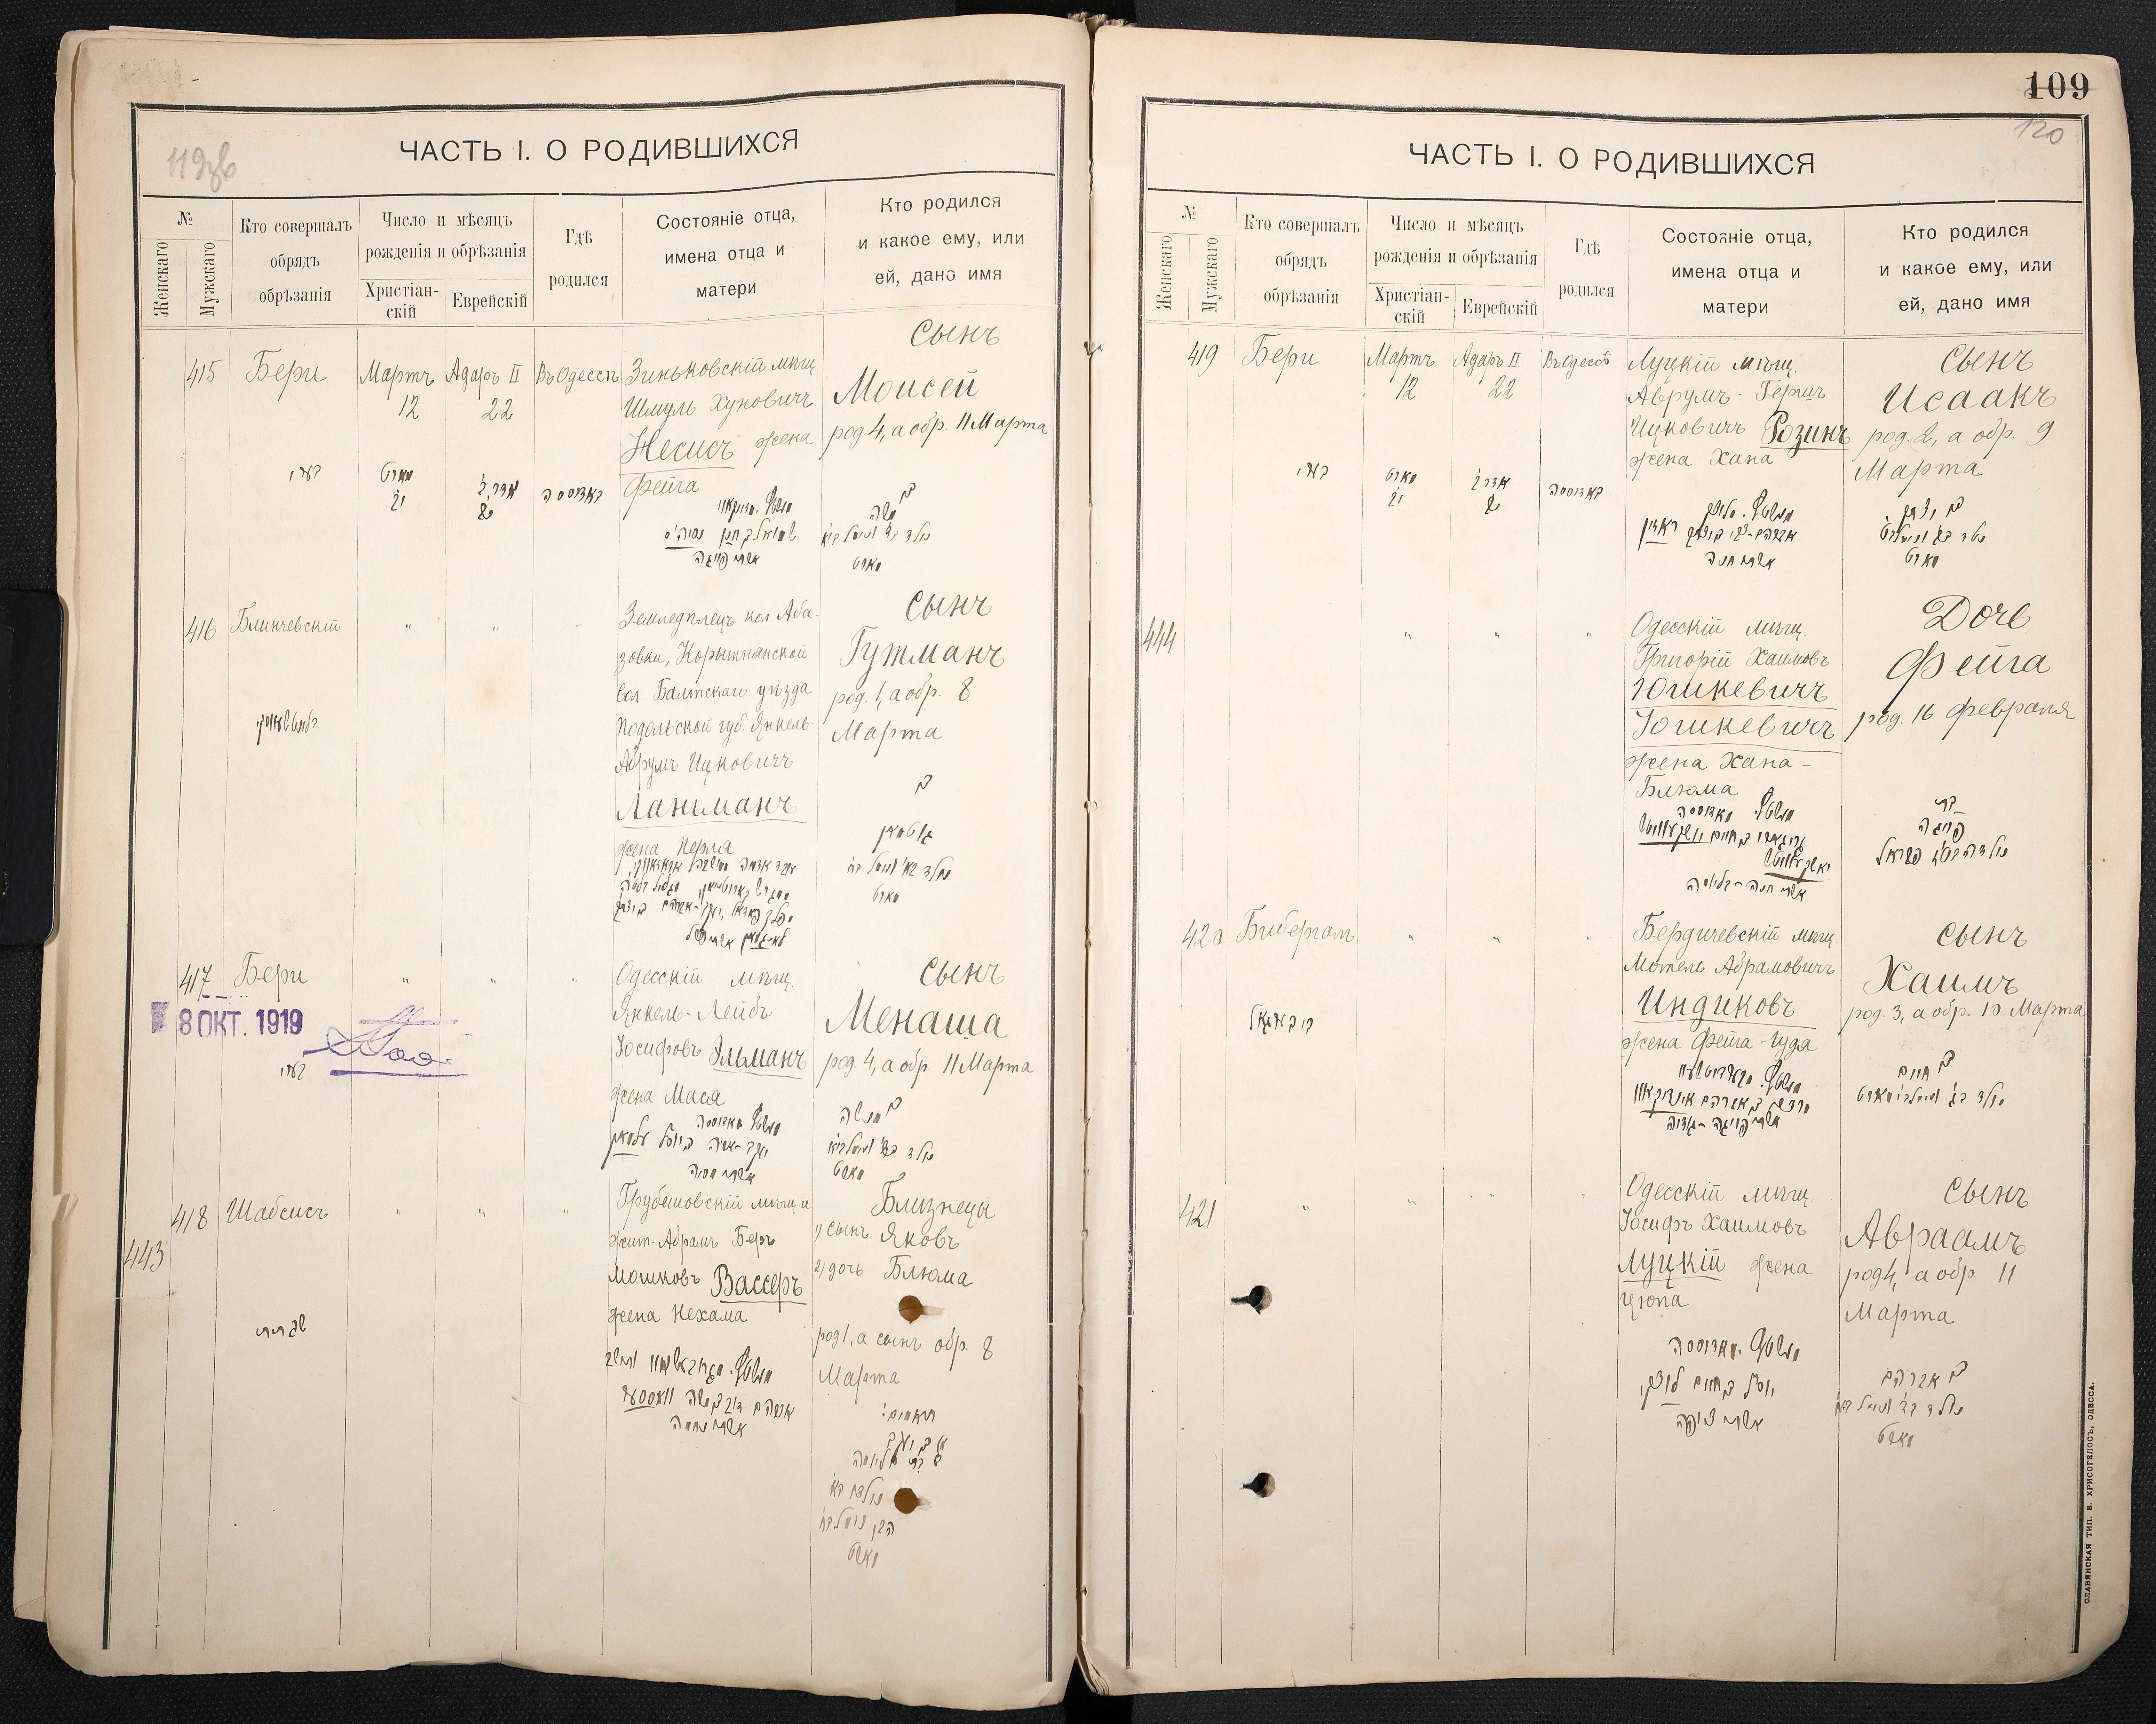 119зв
ЧАСТЬ I. О РОДИВШИХСЯ
№
Женскаго
Мужскаго
Кто совершалъ
обрядъ
обрѣзанія
Число и мѣсяцъ
рожденія и обрѣзанія
Христіан-
скій
Еврейскій
Гдѣ
родился
Состояніе отца,
имена отца и
матери
Кто родился
и какое ему, или
ей, дано имя
415
Бери
Мартъ
12
Адаръ II
22
Въ Одессѣ
Зиньковскій мѣщ
Шмуль Хуновичъ
Несисъ жена
Фейга
сынъ
Моисей
род 4, а обр. 11 Марта
בערי
מארט
באדוססה
משה
מארט
416
Блинчевскій
" " "
Земледѣлецъ кол. Аба-
зовки, Корытнянской
вол Балтскаго уѣзда
Подольской губ. Янкель-
Абрумъ Ицковичъ
Лангманъ
жена Перля
сынъ
Гутманъ
род. 1, а обр. 8
Марта
גוטמאן
מארט
417
Бери
" " "
8 ОКТ. 1919
Одесскій мѣщ.
Янкель-Лейбъ
Іосифовъ Эльманъ
жена Мася
сынъ
Менаша
род. 4, а обр 11 Марта
בערי
מנשה
מארט
443
418
Шабсисъ
" " "
Грубешовскій мѣщ и
жит. Абрамъ Беръ
Мошковъ Вассеръ
жена Нехама
Близнецы
1) сынъ Яковъ
2) дочь Блюма
род 1, а сынъ обр. 8
Марта
אשתו נחמה
תאומים:
מארט
109
120
ЧАСТЬ I. О РОДИВШИХСЯ
№
Женскаго
Мужскаго
Кто совершалъ
обрядъ
обрѣзанія
Число и мѣсяцъ
рожденія и обрѣзанія
Христіан-
скій
Еврейскій
Гдѣ
родился
Состояніе отца,
имена отца и
матери
Кто родился
и какое ему, или
ей, дано имя
419
Бери
Мартъ
12
Адаръ II
22
Въ Одессѣ
Луцкій мѣщ.
Аврумъ-Гершъ
Ицковичъ Розинъ
жена Хана
сынъ
Исаакъ
род. 2, а обр. 9
Марта
בערי
מארט
באדוססה
אשתו חנה
מארט
444
" " "
Одесскій мѣщ.
Григорій Хаимовъ
Юшкевичъ
Юшкевичъ
жена Хана-
Блюма
Дочь
Фейга
род. 16 февраля
בת
פייגה
אשתו חנה-בלומה
420
Бибергалъ
" " "
Бердичевскій мѣщ.
Мотель Абрамовичъ
Индиковъ
жена Фейга-Гуда
сынъ
Хаимъ
род. 3, а обр. 10 Марта
ביבערגאל
בן חיים
421
" " " "
Одесскій мѣщ.
Іосифъ Хаимовъ
Луцкій жена
Цюпа
сынъ
Авраамъ
род 4, а обр 11
Марта
יוסף בן חיים לוצקי
אשתו ציופה
בן אברהם
מארט
СЛАВЯНСКАЯ ТИП. В. ХРИСОГЕЛОСЪ, ОДЕССА.